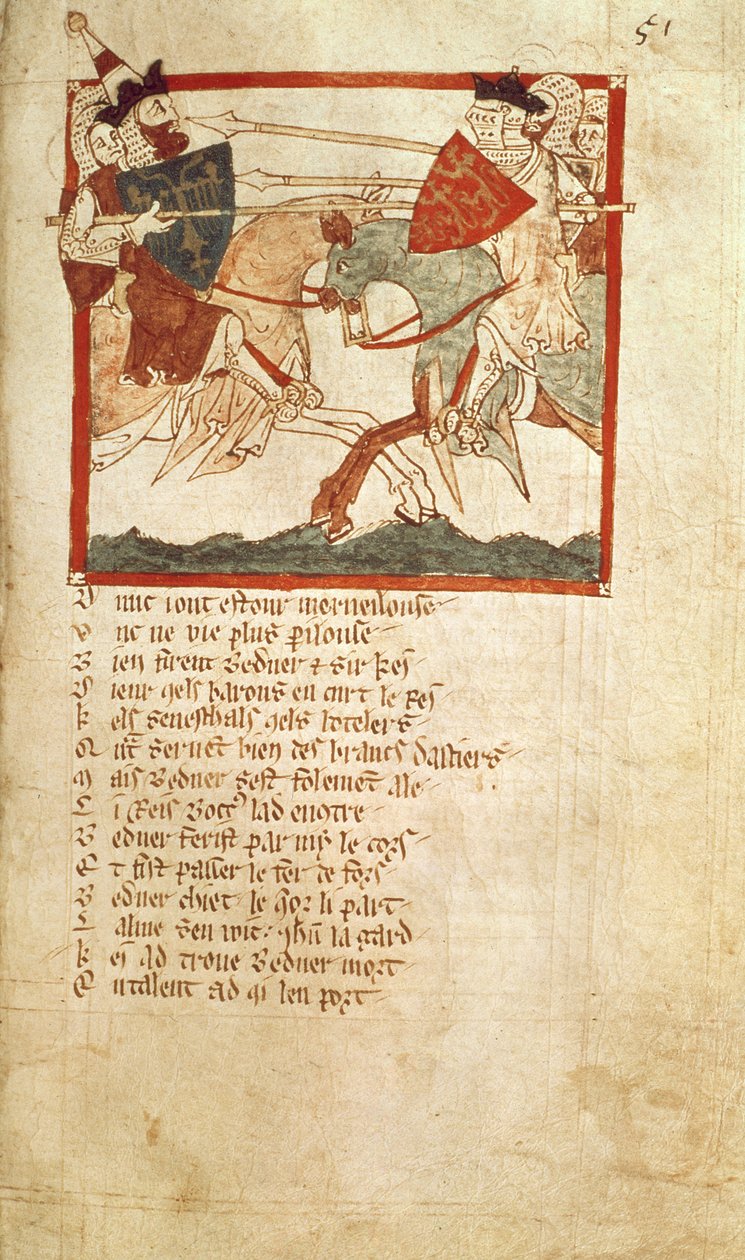 51
D nuc iout estour merueilouse
V nc ne vie plus perilouse
B ien furent Beduer & sir kei
D ieux qels barons en curt le rei
k els seneschals qels botelers
Q unt seruent bien des brancs dasciers
M ais Beduer sest folement ale
L i reis Boccus lad enotre
B eduer ferist par my le cors
E t fist passer le fer de fors
B eduer chiet le quor li part
L alme sen wit ihu la gard
k ei ad troue Beduer mort
E n talent ad qi len port